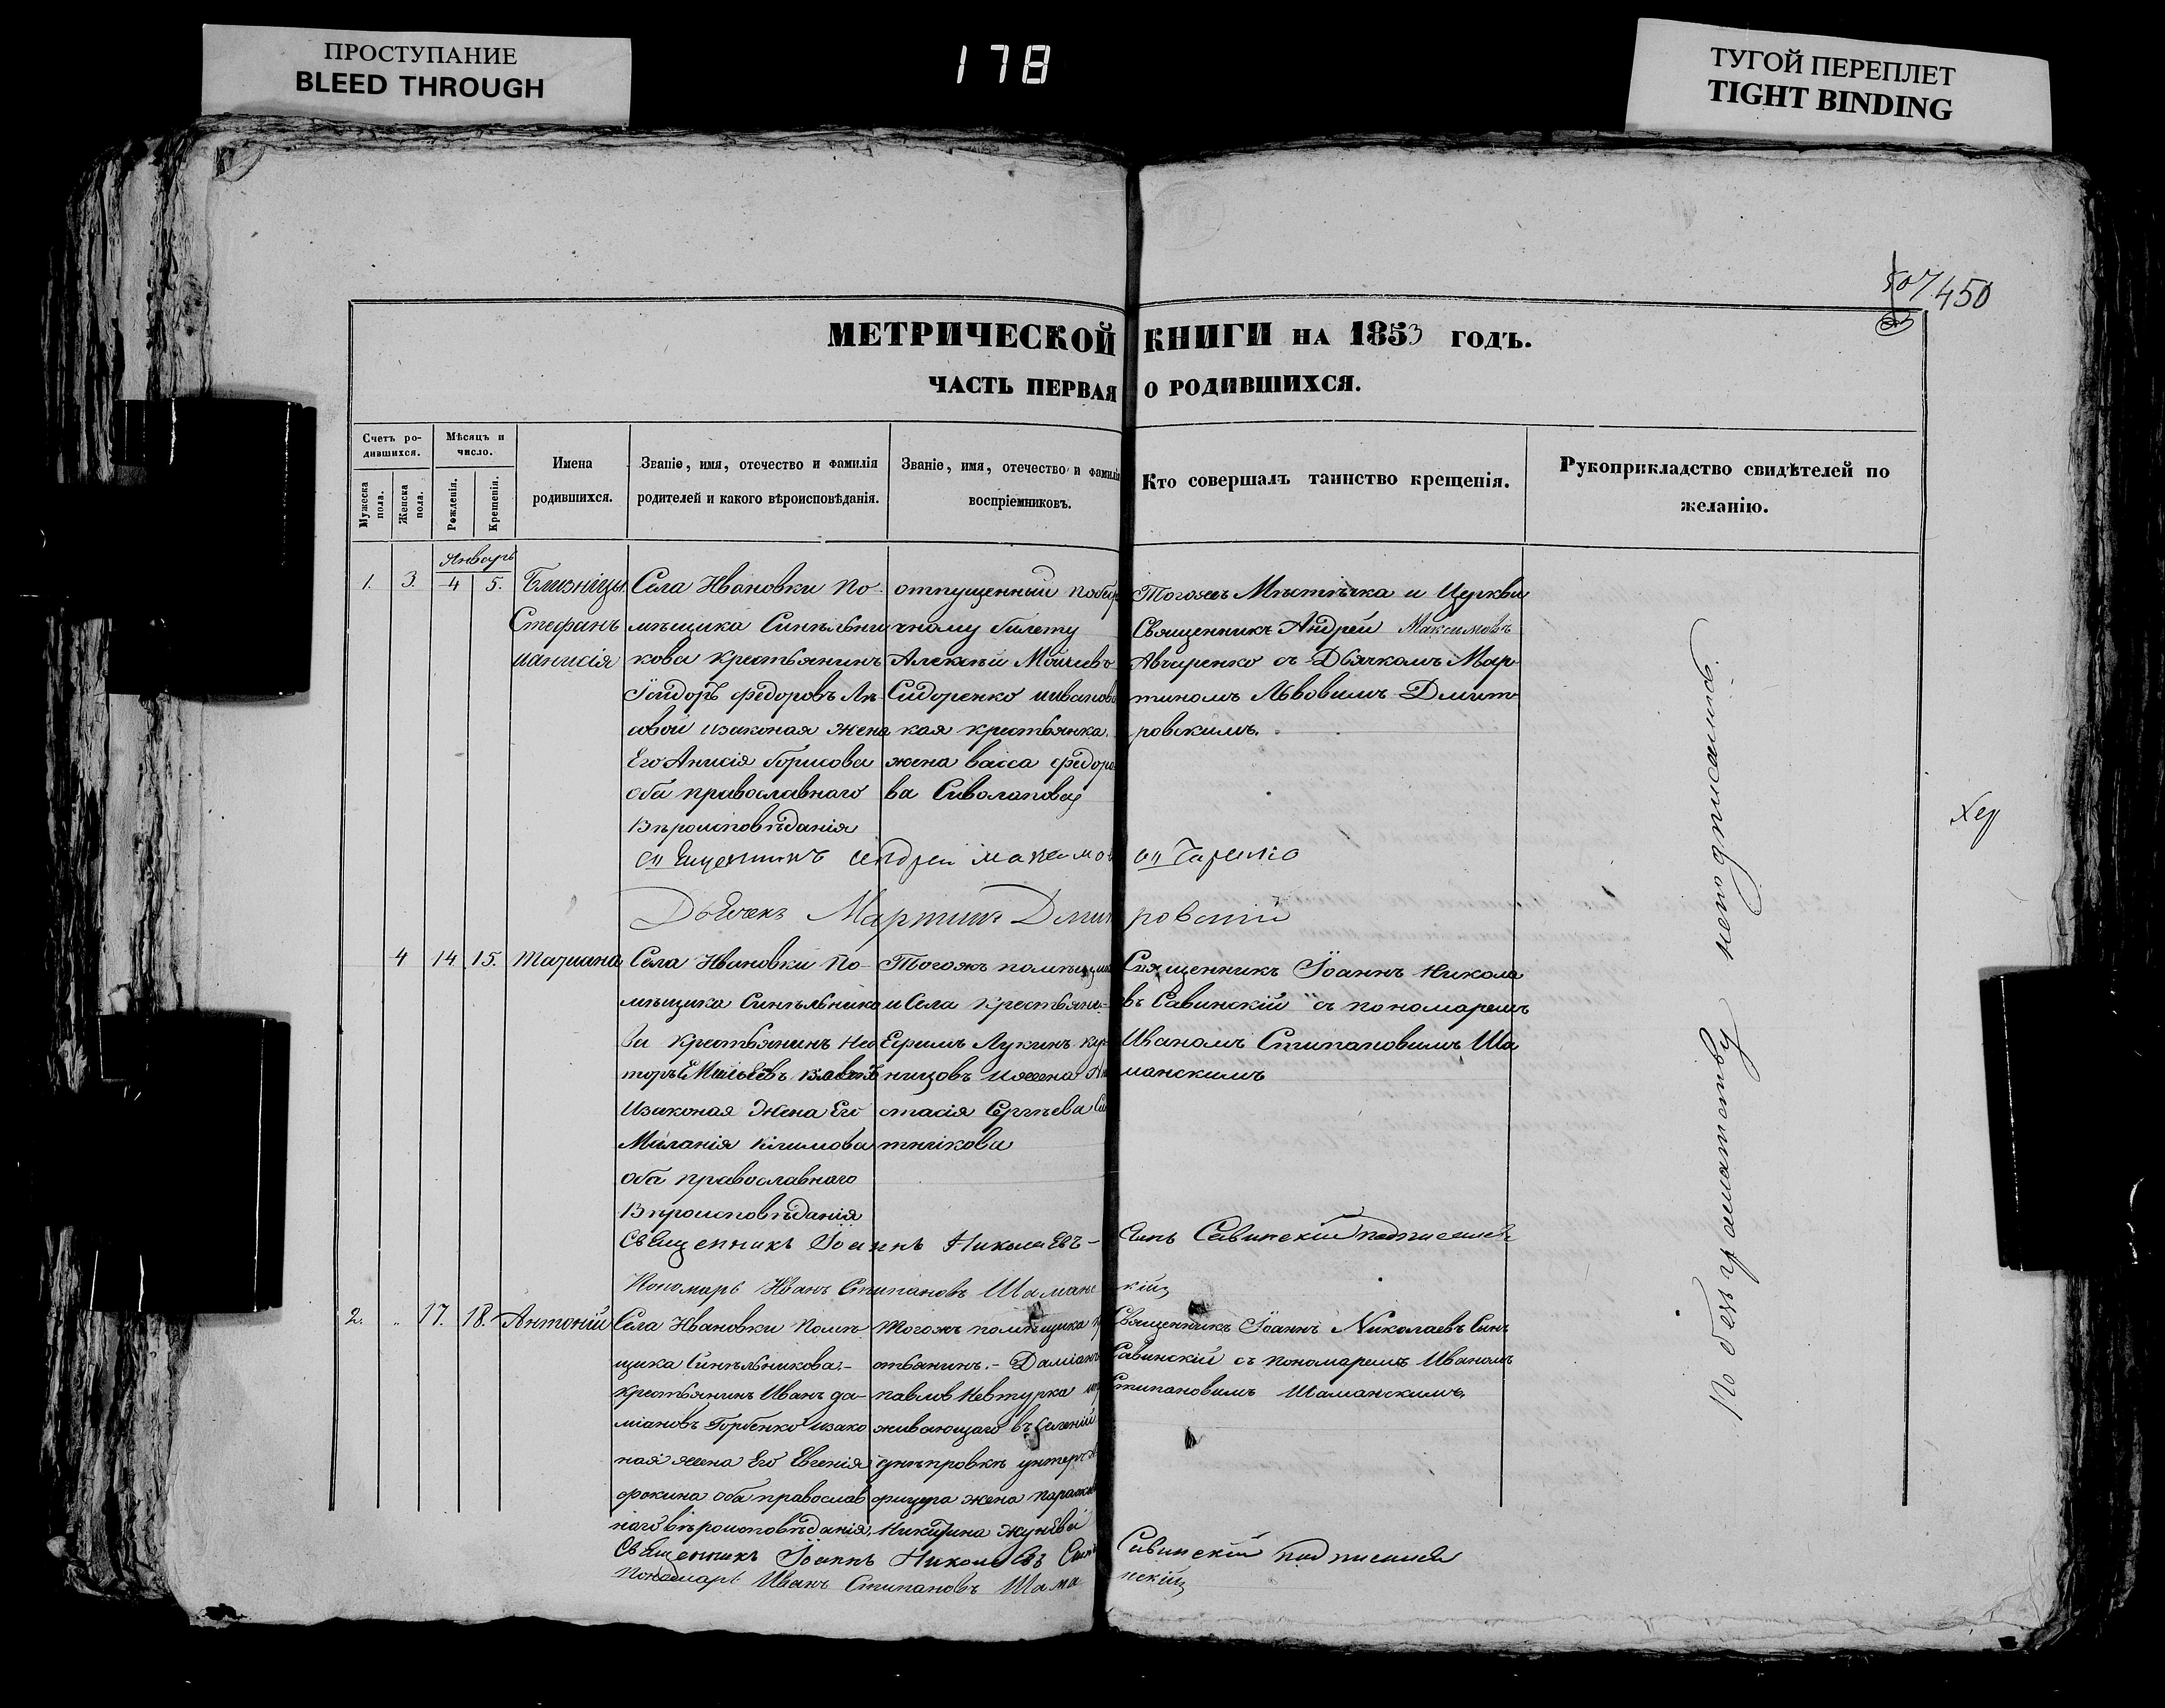 ПРОСТУПАНИЕ
BLEED THROUGH
178
ТУГОЙ ПЕРЕПЛЕТ
TIGHT BINDING
507 450
МЕТРИЧЕСКОЙ КНИГИ НА 1853 ГОДЪ.
ЧАСТЬ ПЕРВАЯ О РОДИВШИХСЯ.
Счетъ ро-
дившихся.
Мужеска пола.
Женска пола.
Мѣсяцъ и
число.
Рожденія.
Крещенія.
Имена
родившихся.
Званіе, имя, отечество и фамилія
родителей и какого вѣроисповѣданія.
Званіе, имя, отечество и фамилія
воспріемниковъ.
Кто совершалъ таинство крещенія.
Рукоприкладство свидѣтелей по
желанію.
Январь
1. 3. 4 5.
Близнецы
Стефанъ
ианисія
Села Ивановки По-
мѣщика Синѣльни
кова крестьянинъ
федоровъ
изаконая жена
Его Анисія борисова
оба православнаго
Вѣроисповѣданія
отпущенный
чному билету
Алексѣй
Сидоренко
кая крестьянка
жена васса федоро
ва
Тогожъ Мѣстечка и Церкви
Священникъ Андрей Максимовъ
Авчаренко съ Дьячкомъ Мар
тиномъ Львовымъ Дмит
ровскимъ.
Священникъ Андрей Максимов
Дьячекъ Мартинъ Дмит ровскій
4 14 15. Татиана
Села Ивановки По-
мѣщика Синѣльнико
ва крестьянинъ
изаконая жена Его
Миланія
оба православнаго
Вѣроисповѣданія
Тогожъ помѣщика
и Села крестьяни-
Ефимъ Лукинъ
ницовъ ижена
стасія Сергѣева
тникова
Священникъ Іоаннъ Никола
въ Савинскій съ пономаремъ
Иваномъ Стипановымъ Ша
манскимъ
Священникъ Іоаннъ Николаевъ- Сынъ Савинскій подписался
Пономарь Иванъ Стипановъ Шаманс кій
2. 17. 18. Антоній
Села Ивановки Помѣ
щика Синѣльникова.-
крестьянинъ Иванъ да-
міановъ Горбенко изако
ная жена Его Евгенія
фокина оба православ
наго вѣроисповѣданія
Тогожъ помѣщика кр
стьянинъ.- Даміанъ
павлов Невтурка
живающаго въ селеніи
днѣпровкѣ унтеръ
фицера жена параскев
Никитина
Священникъ Іоаннъ Николаевъ Сынъ
Савинскій съ пономаремъ Иваномъ
Стипановымъ Шаманскимъ.
Священникъ Іоаннъ Николаевъ Сынъ Савинскій подписался
Пономарь Иванъ Стипановъ Шама нскій
По безграматству неподписались.